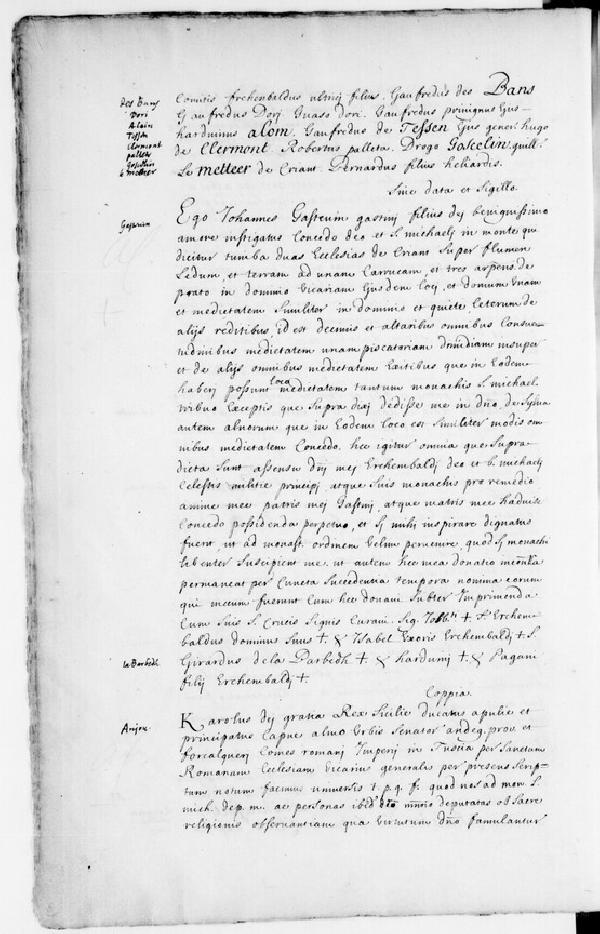 des Bans
Doré
Alaün
Tessen
Clermont
palleta
Goscelin
le metteer
Comitis frehenbaldus filius, Gaufredus des Bans
Gaufredus Dorj Guasdoré. Gaufredus
harduinus alom. Gaufredus de Tessen Ejus gener. hugo
de Clermont. Robertus palleta. Drogo Goscelin. guill.
Le metteer de Criant. Bernardus filius heliardis.
Sine data et Sigillo.
Ego Johannes Gastenin gastonij filius dej benignissimo
amore instigatus Concedo deo et S. michaelj in monte qui
dicitur tumba duas Ecclesias de Criant Super flumen
Ledum, et terram ad unam Carrucam, et tres arpens. de
prato in dominio vicariam Ejusdem locj, et domum unam
et medietatem Similiter in dominio et quiete, Ceterum de
alijs redditibus, id est decimis et altaribus omnibus Consue-
tudinibus medietatem unam piscatoriam dimidiam insuper
et de alijs omnibus medietatem Exitibus que in Eodem
loca
haberj possunt medietatem tantum monachis S. michael.
tribuo Exceptis que Supra dixj dedisse me in dn̄o, de Sylva
autem alnorum que in Eodem loco est Similiter modis om
nibus medietatem Concedo. hec igitur omnia que Supra-
dicta Sunt assensu dnj mej Erchembaldj deo et b. michaelj
Celestis militie principj, atque Suis monachis pro remedio
anime mee patris mej Gastonij, atque matris mee haduisę
Concedo possidenda perpetuo, et Sj mihj inspirare dignatus
fuerit, ut ad monast. ordinem velim pervenire, quod Sj monachj
lubenter Suscipient me. ut autem hec mea donatio
permaneat per Cuncta Succedentia tempora nomina eorum
qui mecum fuerunt Cum hec donavi Subter Imprimenda
Cum Suis S. Crucis Signis Curavi. Sig. + S. Erchem-
baldus dominus Suus + & Isabel Uxoris Erchembaldj + S.
la Barbedh
Girardus de la Barbedh + & harduinj + & Paganj
filij Erchembaldj +.
Coppia.
Anjou
Karolus dej gratia Rex Sicilie ducatus apulie et
principatus Capue almo Urbis Senator andeg. prov. et
forcalquerj Comes romanj Imperij in Tuscia per Sanctam
Romanam Ecclesiam Vicarius generalis per presens Scrip-
tum notum facimus universis t. p. q. f. quod nos ad mon. S.
mich. de p. m. ac personas ibid. dn̄o deputatas ob Sacre
religionis observantiam qua virtutum dn̄o famulantur